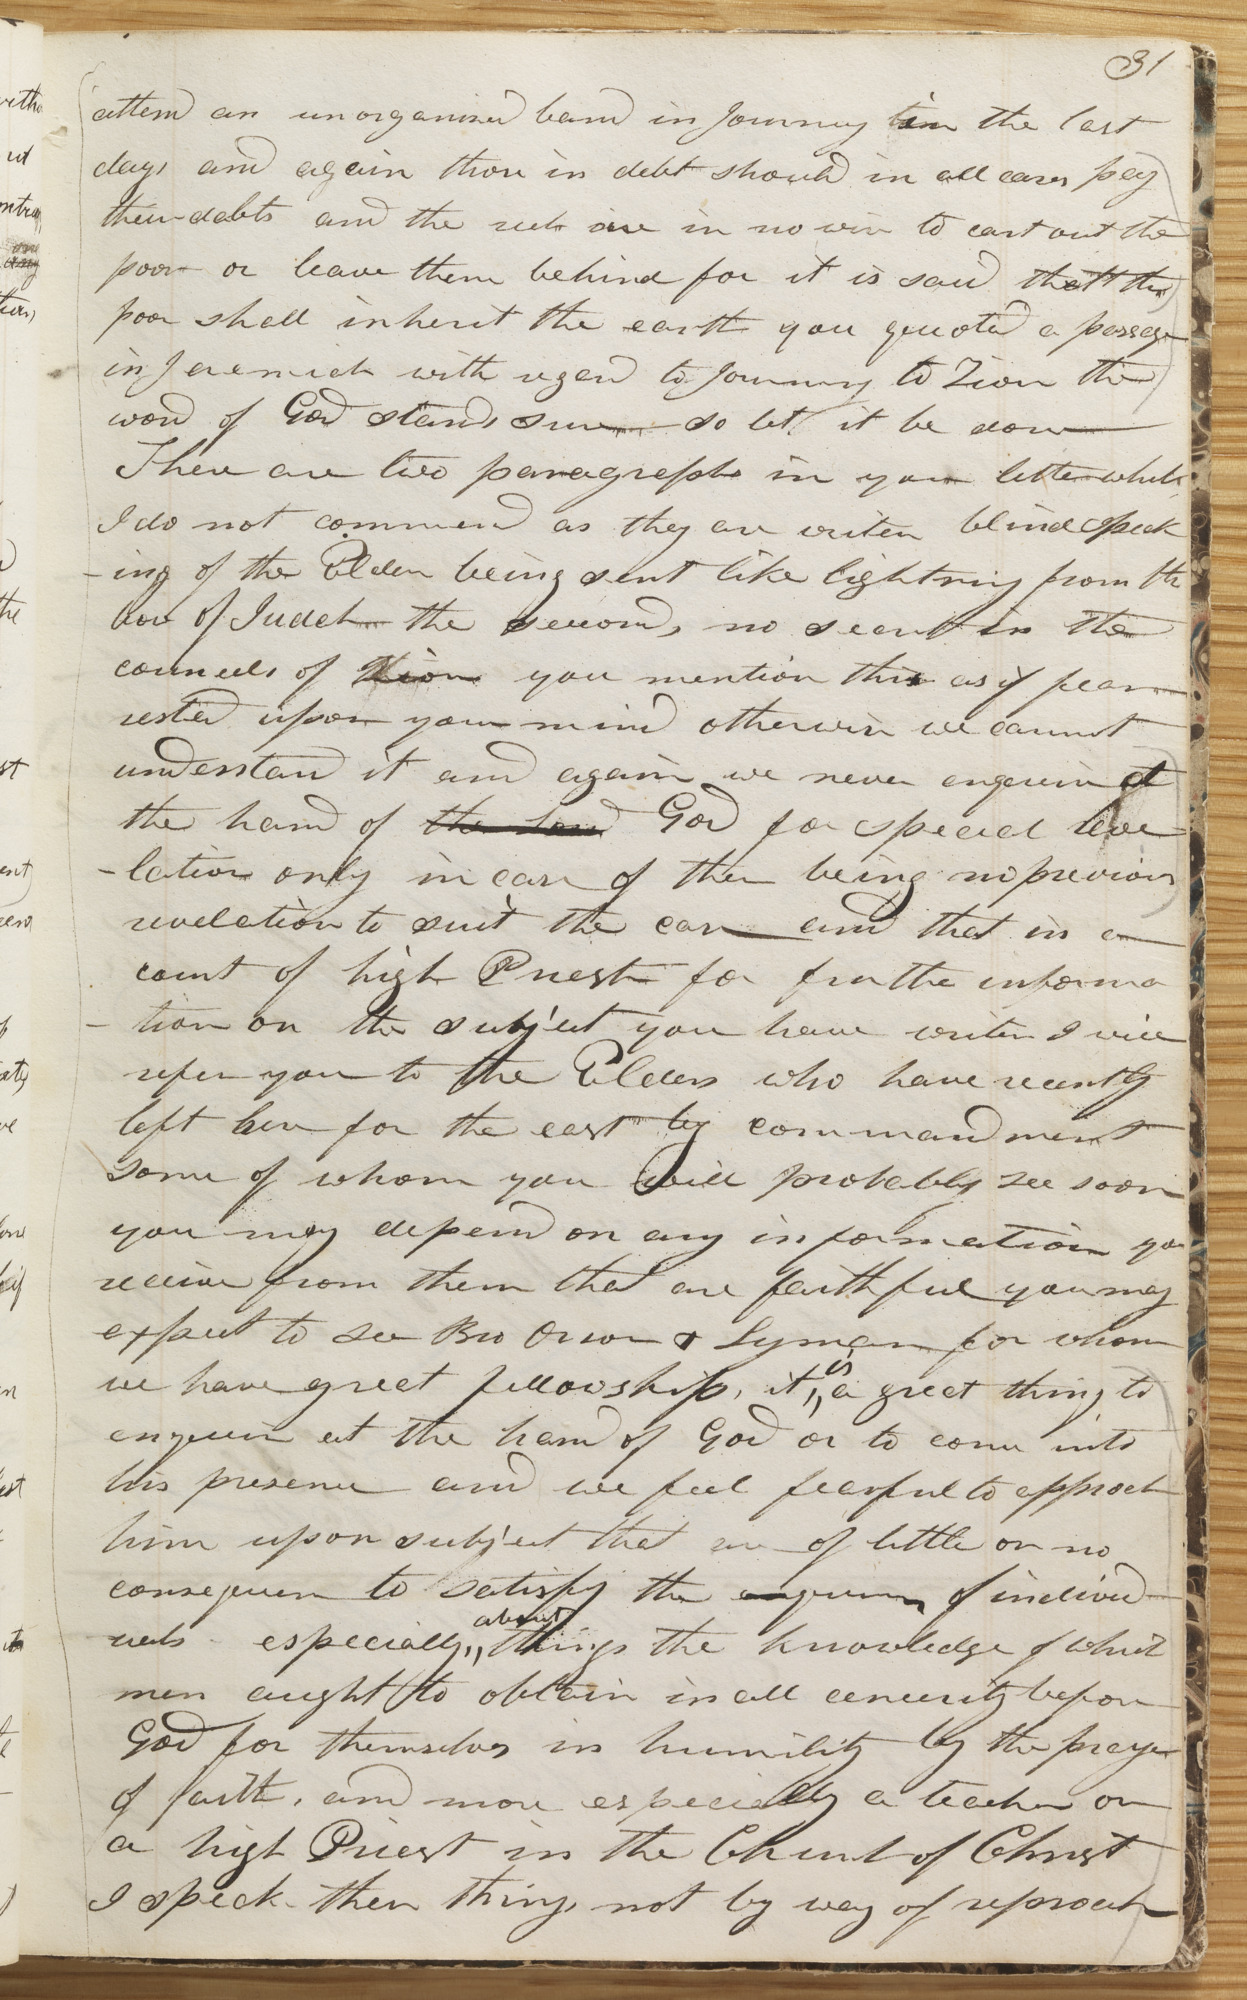 31
attend an unorganised band in Journey in the last
days and again those in debt should in all cases pay
their debts and the rich are in no wise to cast out the
poor or leave them behind for it is said that the
poor shall inherit the earth you quoted a passage
in Jeremiah with regard to Journey to Zion the
word of God stands sure so let it be done
There are two paragraphs in your letter which
I do not commend as they are writen blind speak
-ing of the Elders being sent like lightning from the
bow of Judah the second, no secret in the
councils of Zion you mention this as if fear
rested upon your mind otherwise we cannot
understand it and again we never enquire at
the hand of the Lord God for special reve
-lation only in case of there being no previous
revelation to suit the case and that in a
count of high Priest for further informa
-tion on the subject you have writen I will
refer you to the Elders who have recently
left here for the east by commandment
some of whom you will probably see soon
you may depend on any information you
recieve from them that are faithful you may
expect to see Bro Orson & Lyman for whom
we have great fellowship, it is a great thing to
enquire at the hand of God or to come into
his presence and we feel fearful to approach
him upon subject that are of little or no
consequence to satisfy the enquiries of individ
uals especially about things the knowledge of which
men aught to obtain in all cencerity before
God for themselves in humility by the prayer
of faith, and more especially a teacher or
a high Priest in the Church of Christ
I speak these things not by way of reproach